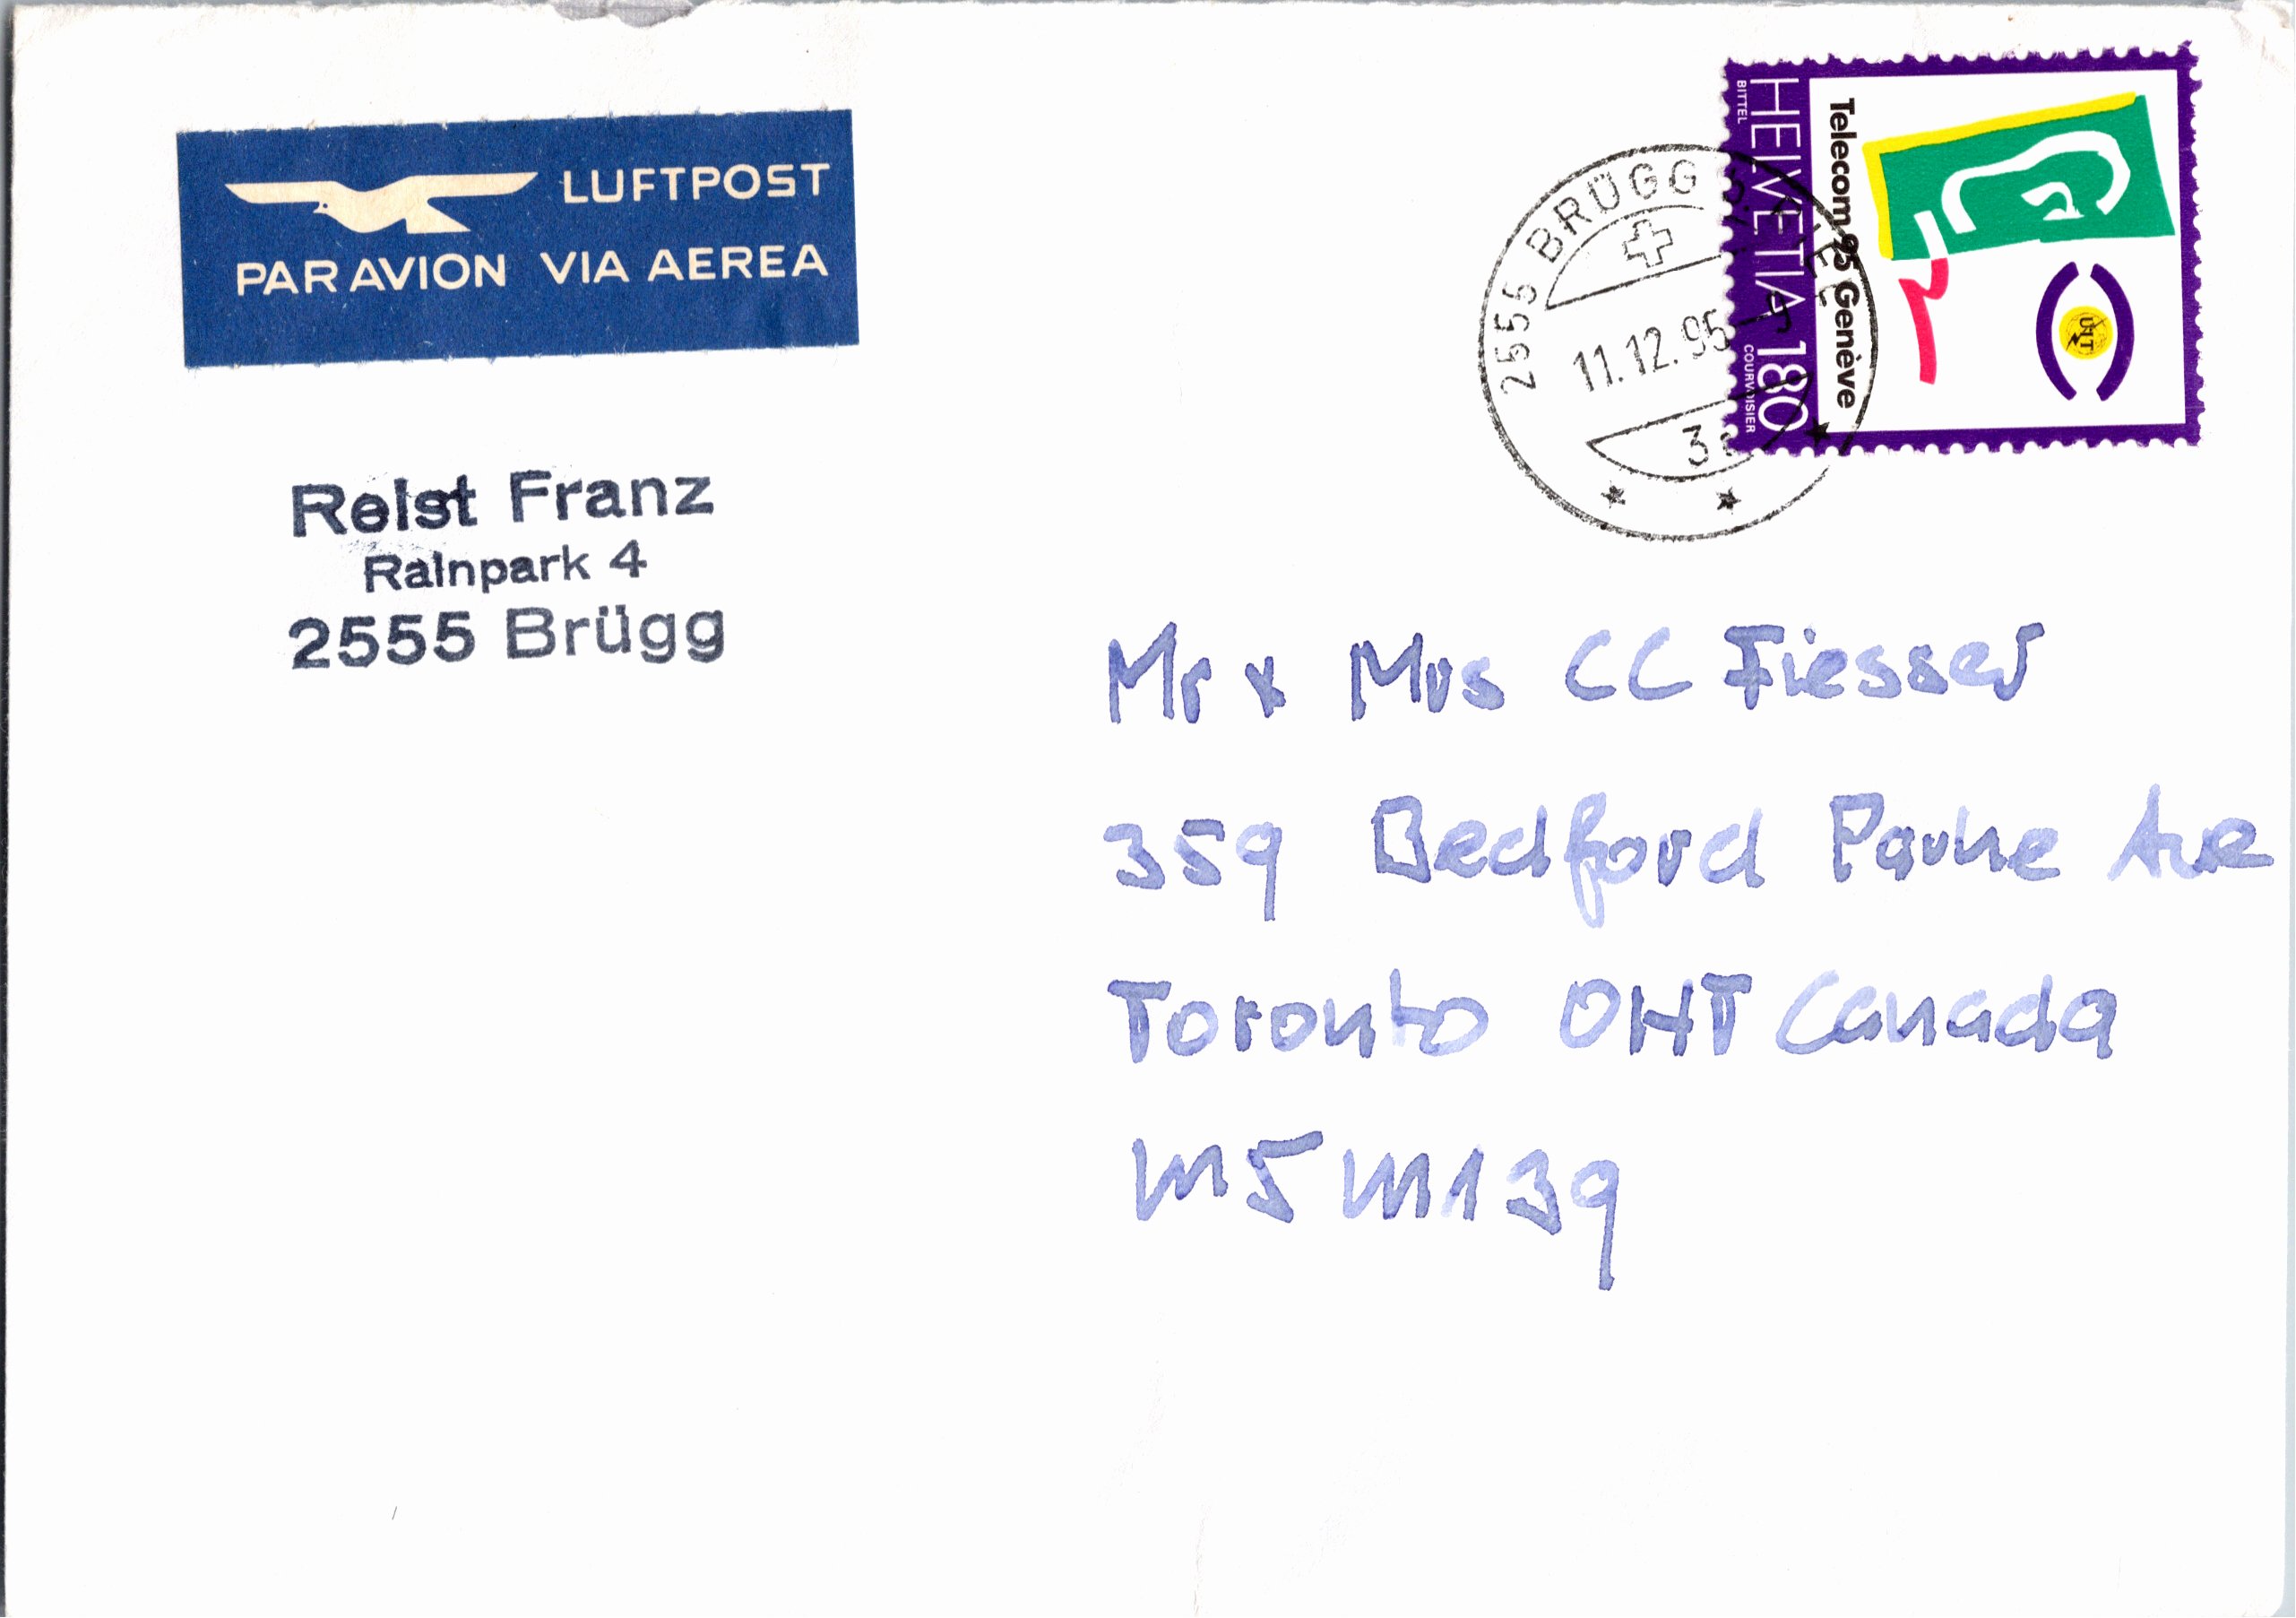 LUFTPOST
PAR AVION VIA AEREA
Reist Franz
Rainpark 4
2555 Brügg
2555 BRÜGG
11.12.95
HELVETIA 180
BITTEL
COURVOISIER
Telecom 95 Genève
UIT
Mr & Mrs CC Fiesser
359 Bedford Parke Ave
Toronto ONT Canada
M5M139